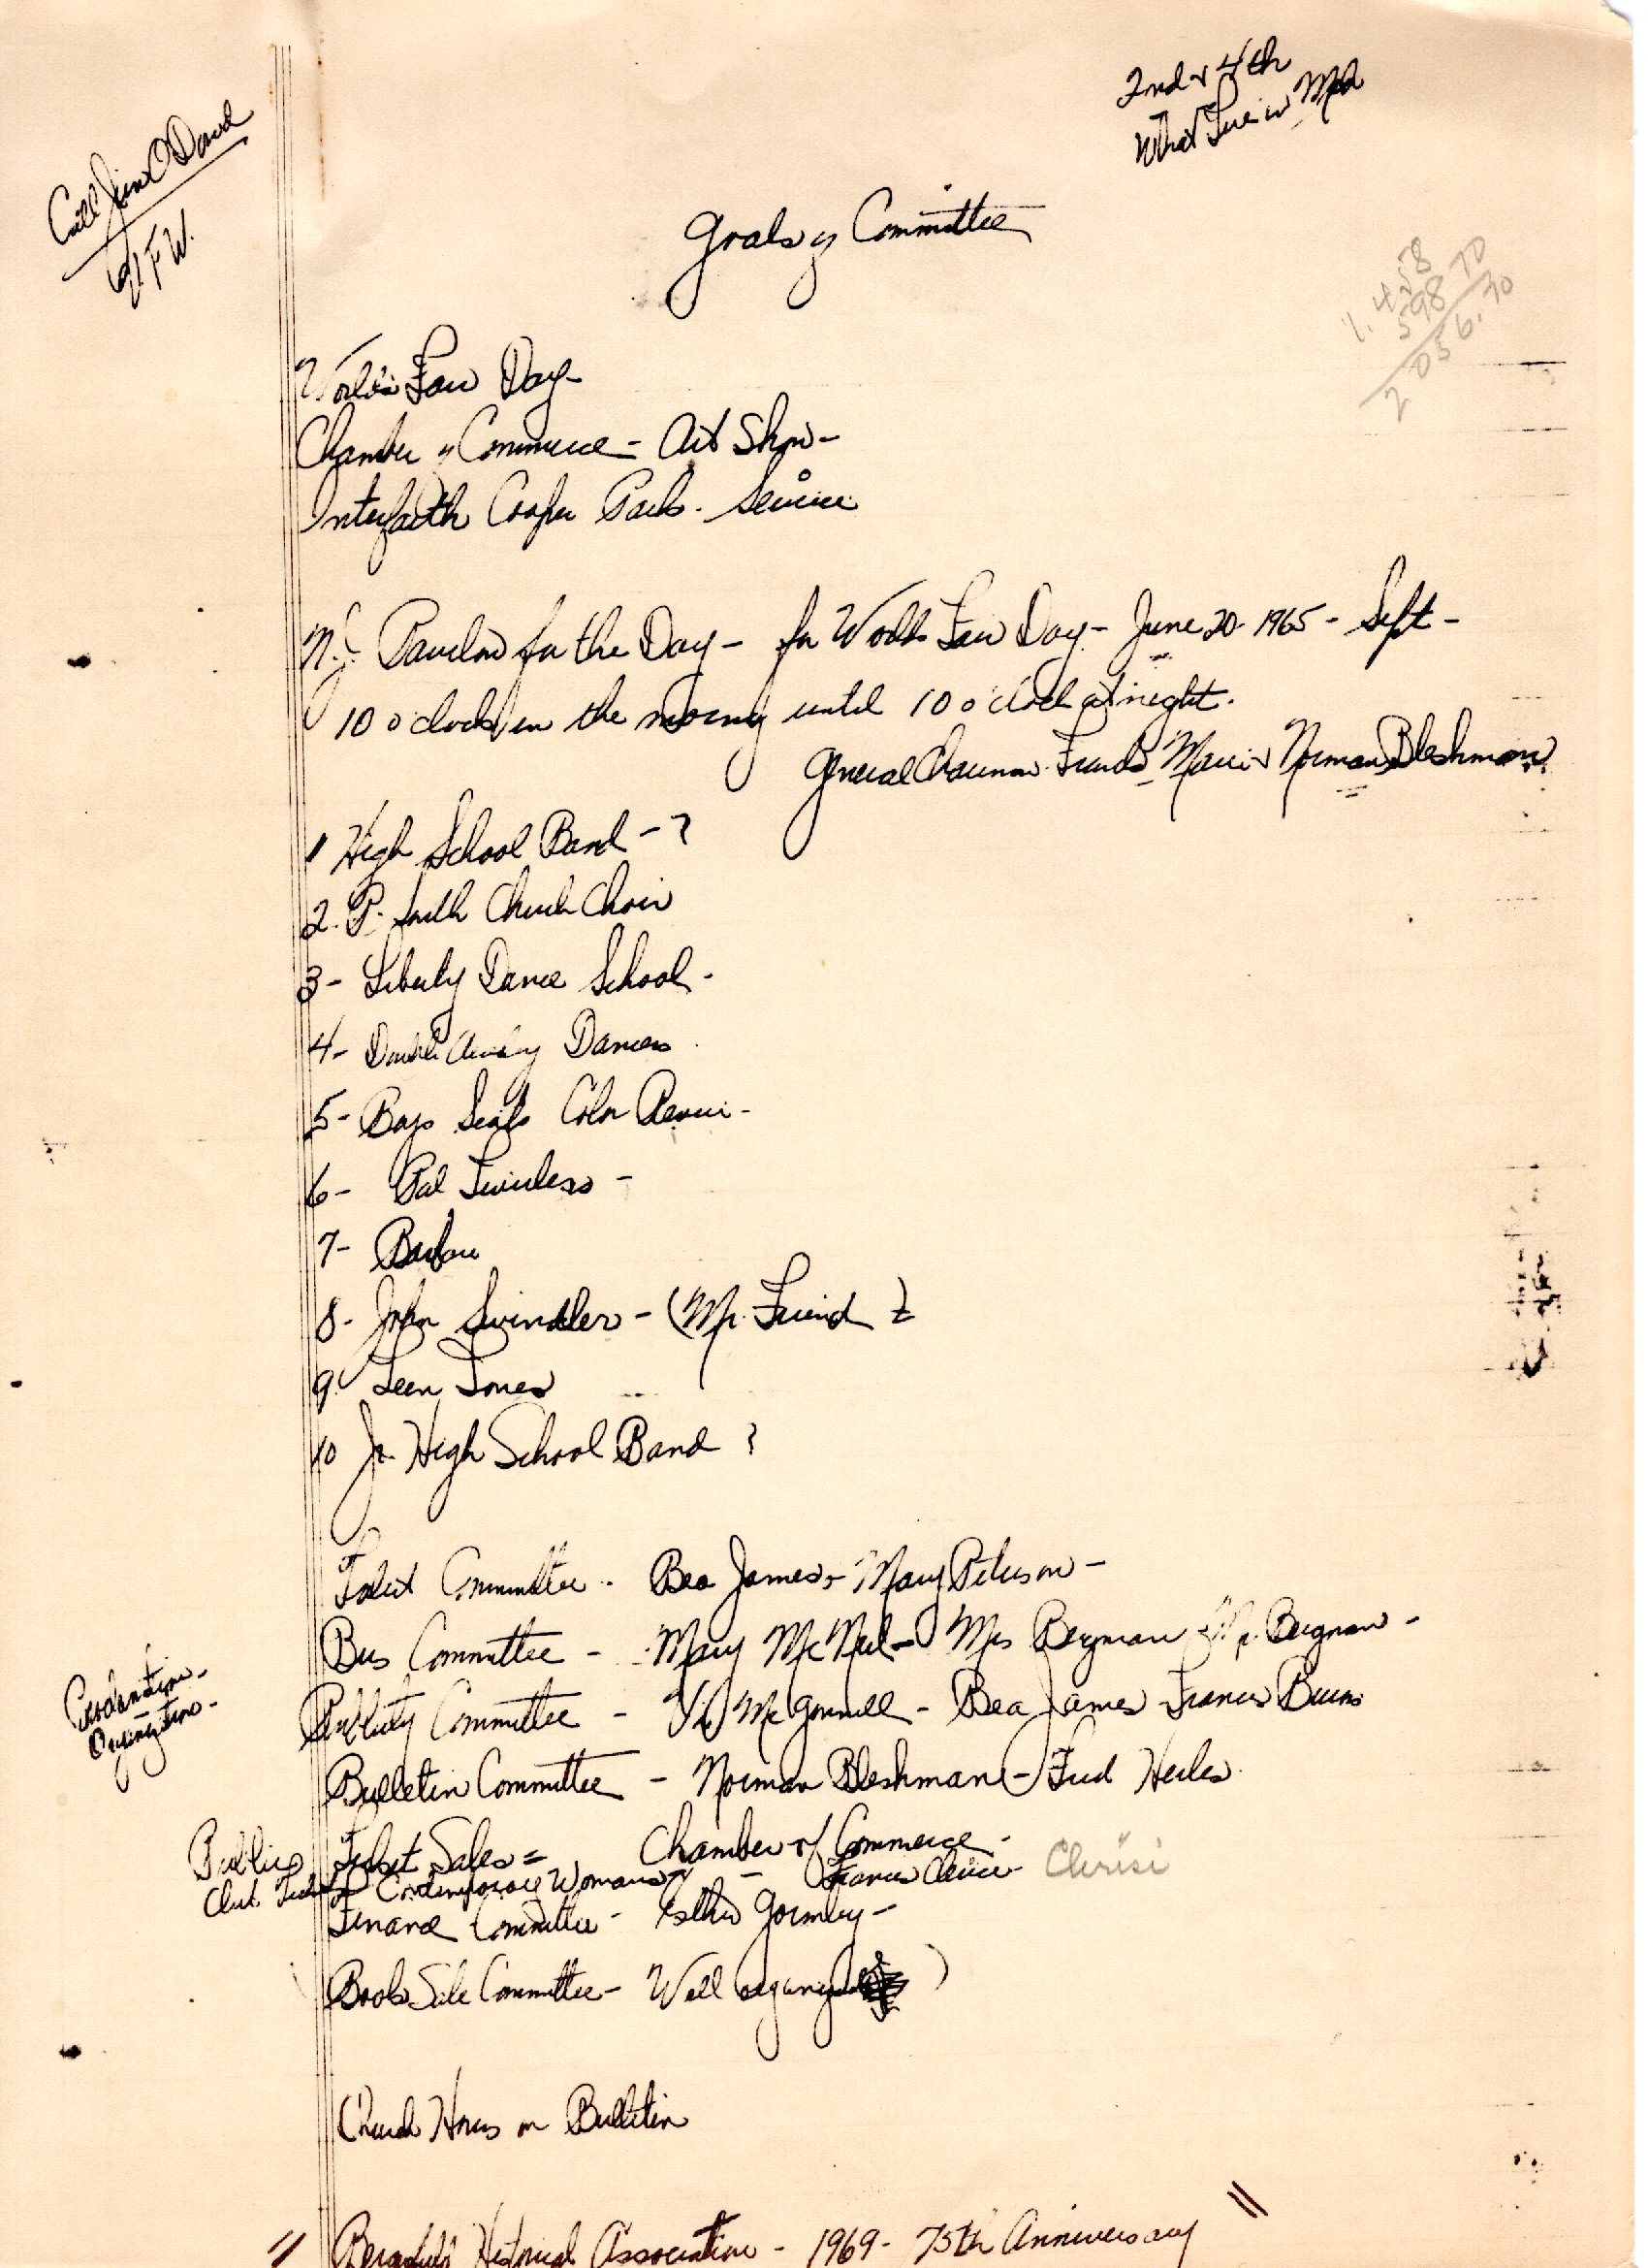 2nd & 4th
What
Call Jim O'Dowd
V.F.W.
Goals of Committee
1,458
598 70
2056.70
World's Fair Day -
Chamber of Commerce - Art Show -
Interfaith Cooper Park - Service
N.J. Pavilion for the Day - for Worlds Fair Day - June 20 - 1965 - Sept -
10 o clock in the morning until 10 o clock at night.
General Chairman Marie & Norman Bleshman
1 High School Band - ?
2. Church Choir
3 - Liberty Dance School -
4 - Dancers
5 - Boys Scouts Color
6 - Pal Twirlers -
7 -
8 - John Swindler - (Mr. Friend ?
9. Teen Tones
10 Jr. High School Band ?
Talent Committee - Bea James & Mary Peterson -
Bus Committee - Mary McNeil - Mrs Bergman & Mr. Bergman -
Publicity Committee - McGonnell - Bea James - Frances Burns
Bulletin Committee - Norman Bleshman - Fred
Public Ticket Sales = Chamber of Commerce -
Club. Contemporary Womans - Frances Clerisi
Finance Committee - Esther Gormley -
Book Sale Committee - Well organized )
Church Hours on Bulletin
" Bergenfield Historical Association - 1969 - 75th Anniversary "